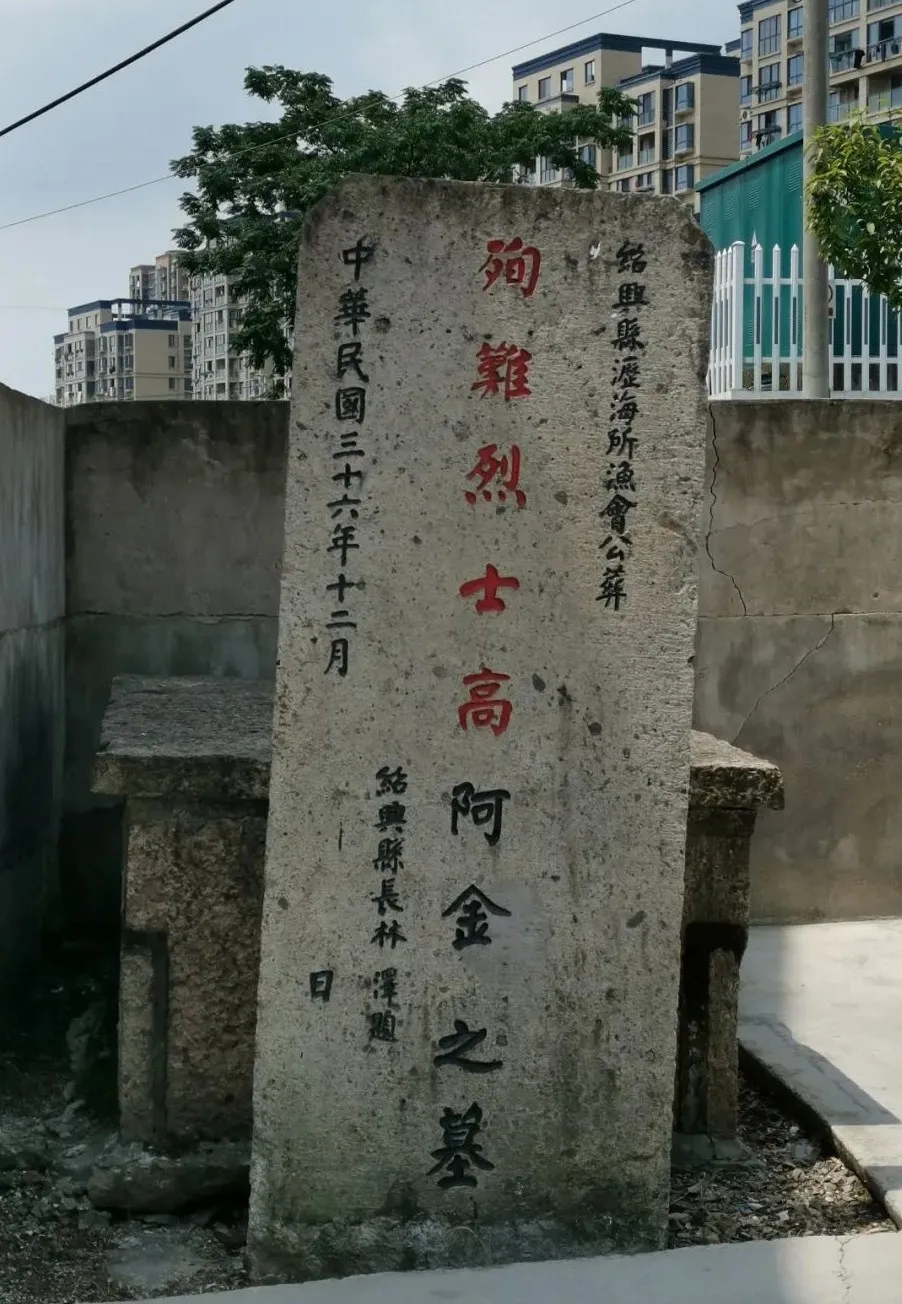 紹興縣瀝海所漁會公葬
殉難烈士高阿金之墓
紹興縣長林澤題
中華民國三十六年十二月 日